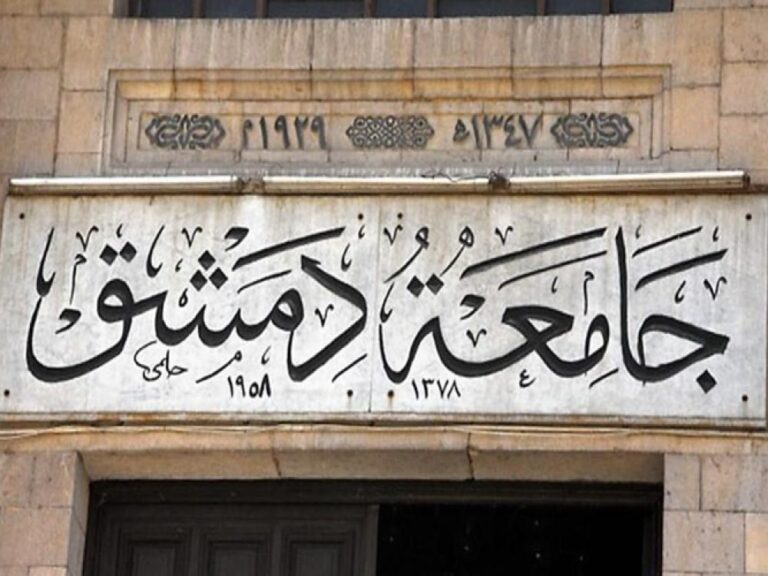 ١٣٤٧ه ١٩٢٩م
جَامِعَةُ دِمَشْق
١٣٧٨ ١٩٥٨م حلمي